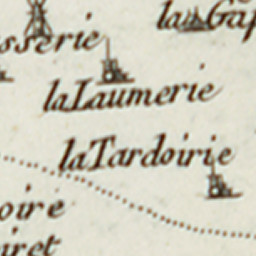 la Gap
sserie
la Laumerie
la Tardoirie
oire
iret